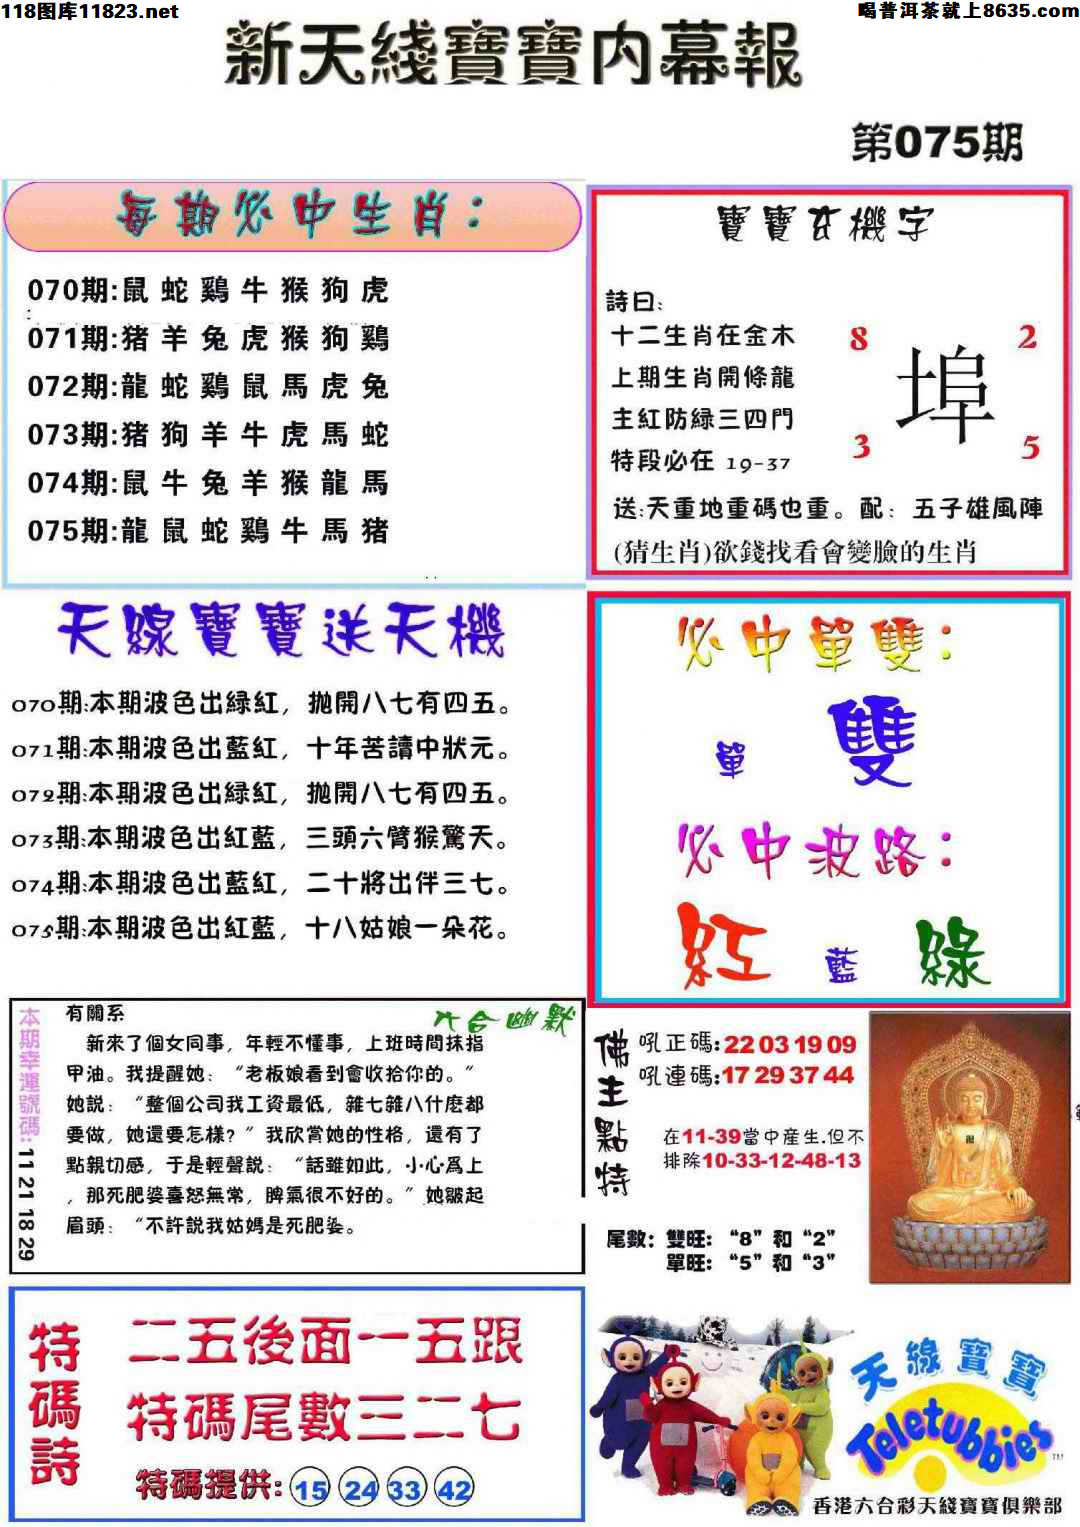 118图库11823.net
喝普洱茶就上8635.com
新天綫寶寶内幕報
第075期
每期必中生肖：
070期:鼠 蛇 鷄 牛 猴 狗 虎
071期:猪 羊 兔 虎 猴 狗 鷄
072期:龍 蛇 鷄 鼠 馬 虎 兔
073期:猪 狗 羊 牛 虎 馬 蛇
074期:鼠 牛 兔 羊 猴 龍 馬
075期:龍 鼠 蛇 鷄 牛 馬 猪
寶寶玄機字
詩曰:
十二生肖在金木
上期生肖開條龍
主紅防緑三四門
特段必在 19-37
8 2
埠
3 5
送:天重地重碼也重。配：五子雄風陣
(猜生肖)欲錢找看會變臉的生肖
天線寶寶送天機
070期:本期波色出緑紅，抛開八七有四五。
071期:本期波色出藍紅，十年苦讀中狀元。
072期:本期波色出緑紅，抛開八七有四五。
073期:本期波色出紅藍，三頭六臂猴驚天。
074期:本期波色出藍紅，二十將出伴三七。
075期:本期波色出紅藍，十八姑娘一朵花。
必中單雙：
單 雙
必中波路：
紅 藍 綠
本期幸運號碼: 11 21 18 29
六合幽默
有關系
新來了個女同事，年輕不懂事，上班時間抹指
甲油。我提醒她：“老板娘看到會收拾你的。”
她説：“整個公司我工資最低，雜七雜八什麽都
要做，她還要怎樣？”我欣賞她的性格，還有了
點親切感，于是輕聲説：“話雖如此，小心爲上
，那死肥婆喜怒無常，脾氣很不好的。”她皺起
眉頭：“不許説我姑媽是死肥婆。
佛主點特
吼正碼:22 03 19 09
吼連碼:17 29 37 44
在11-39當中産生.但不
排除10-33-12-48-13
尾數：雙旺：“8”和“2”
單旺：“5”和“3”
特碼詩
二五後面一五跟
特碼尾數三二七
特碼提供: 15 24 33 42
天線寶寶
Teletubbies
TM
香港六合彩天綫寶寶俱樂部